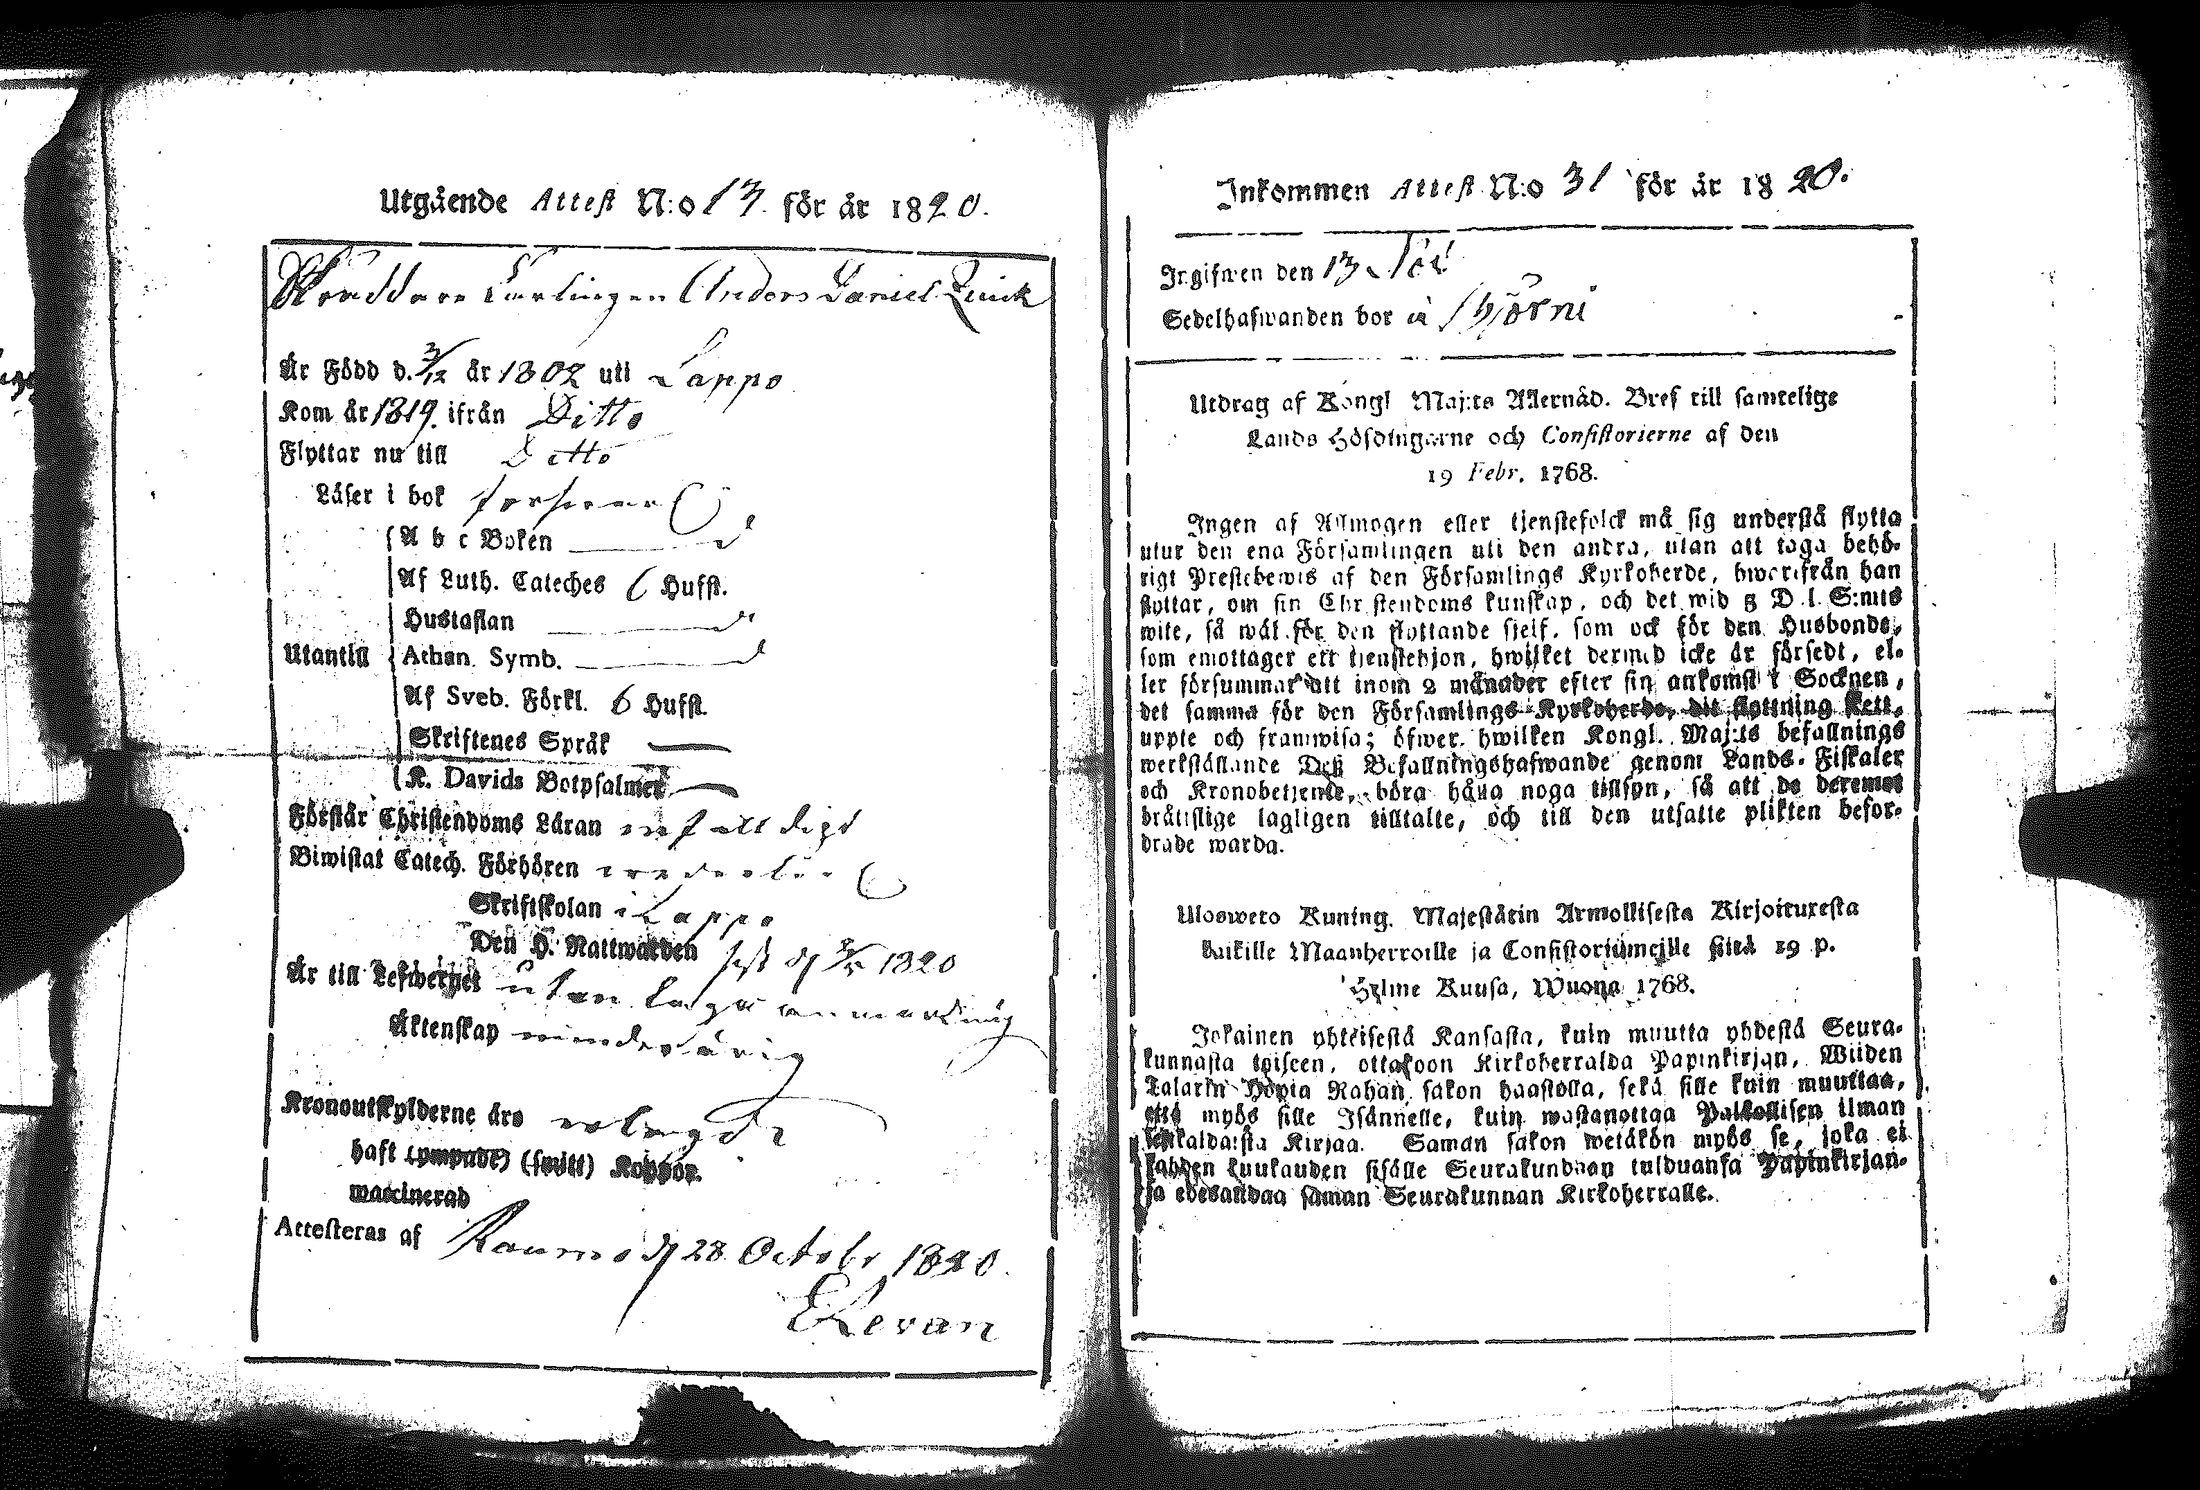 Utgående Attest N:o 13. för år 1820.
Skräddare Lärlingen Anders Daniel Quick
Är Född d. 3/12 år 1802 uti Lappo
Kom år 1819. ifrån Ditto
Flyttar nu till Ditto
Läser i bok
A b c Boken
Af Luth. Cateches 6 Hufst.
Hustaflan
Utantill
Athan. Symb.
Af Sveb. Förkl. 6 Hufst.
Skriftenes Språk
K. Davids Botpsalmer
Förstår Christendoms Läran nöjaktigt
Biwistat Catech. Förhören
Skriftskolan i Lappo
Den H. Nattwarden sist d. 1820
Är till Lefwernet utan laga anmärkning
Äktenskap minderårig
Kronoutskylderne äro erlagde
haft (ympade) (smitt) Koppor.
waccinerad
Attesteras af Raumo d. 28 Octobr 1820.
Levan
Inkommen Attest N:o 31 för år 1820.
Ingifwen den 13
Sedelhafwanden bor i
Utdrag af Kongl Maj:ts Allernåd. Bref till samtelige
Lands Höfdingarne och Consistorierne af den
19 Febr. 1768.
Ingen af Allmogen eller tjenstefolck må sig understå flytta
utur den ena Församlingen uti den andra, utan att taga behö-
rigt Prestebewis af den Församlings Kyrkoherde, hwarifrån han
flyttar, om sin Christendoms kunskap, och det wid 5 D.l. S:mts
wite, så wäl för den flyttande sjelf, som ock för den Husbonde,
som emottager ett tjenstehjon, hwilket dermed icke är försedt, el-
ler försummar att inom 2 månader efter sin ankomst i Socknen,
det samma för den Församlings Kyrkoherde, dit flyttning skett,
uppte och framwisa; öfwer hwilken Kongl. Maj:ts befallnings
werkställande Deß Befallningshafwande genom Lands-Fiskaler
och Kronobetjente, böra hålla noga tillsyn, så att de deremot
bråttslige lagligen tilltalte, och till den utsatte plikten befor-
drade warda.
Ulosweto Kuning. Majestätin Armollisesta Kirjoituxesta
kaikille Maanherroille ja Consistoriumeille siitä 19 p.
Helme Kuusa, Wuona 1768.
Jokainen yhteisestä Kansasta, kuin muutta yhdestä Seura-
kunnasta toiseen, ottakoon Kirkoherralda Papinkirjan, Wiiden
Talarin Hopia Rahan sakon haastolla, sekä sille kuin muuttaa,
että myös sille Isännelle, kuin wastanottaa Palkollisen ilman
senkaldaista Kirjaa. Saman sakon wetäkön myös se, joka ei
kahden kuukauden sisälle Seurakundaan tulduansa Papinkirjan-
sa edesandaa saman Seurakunnan Kirkoherralle.